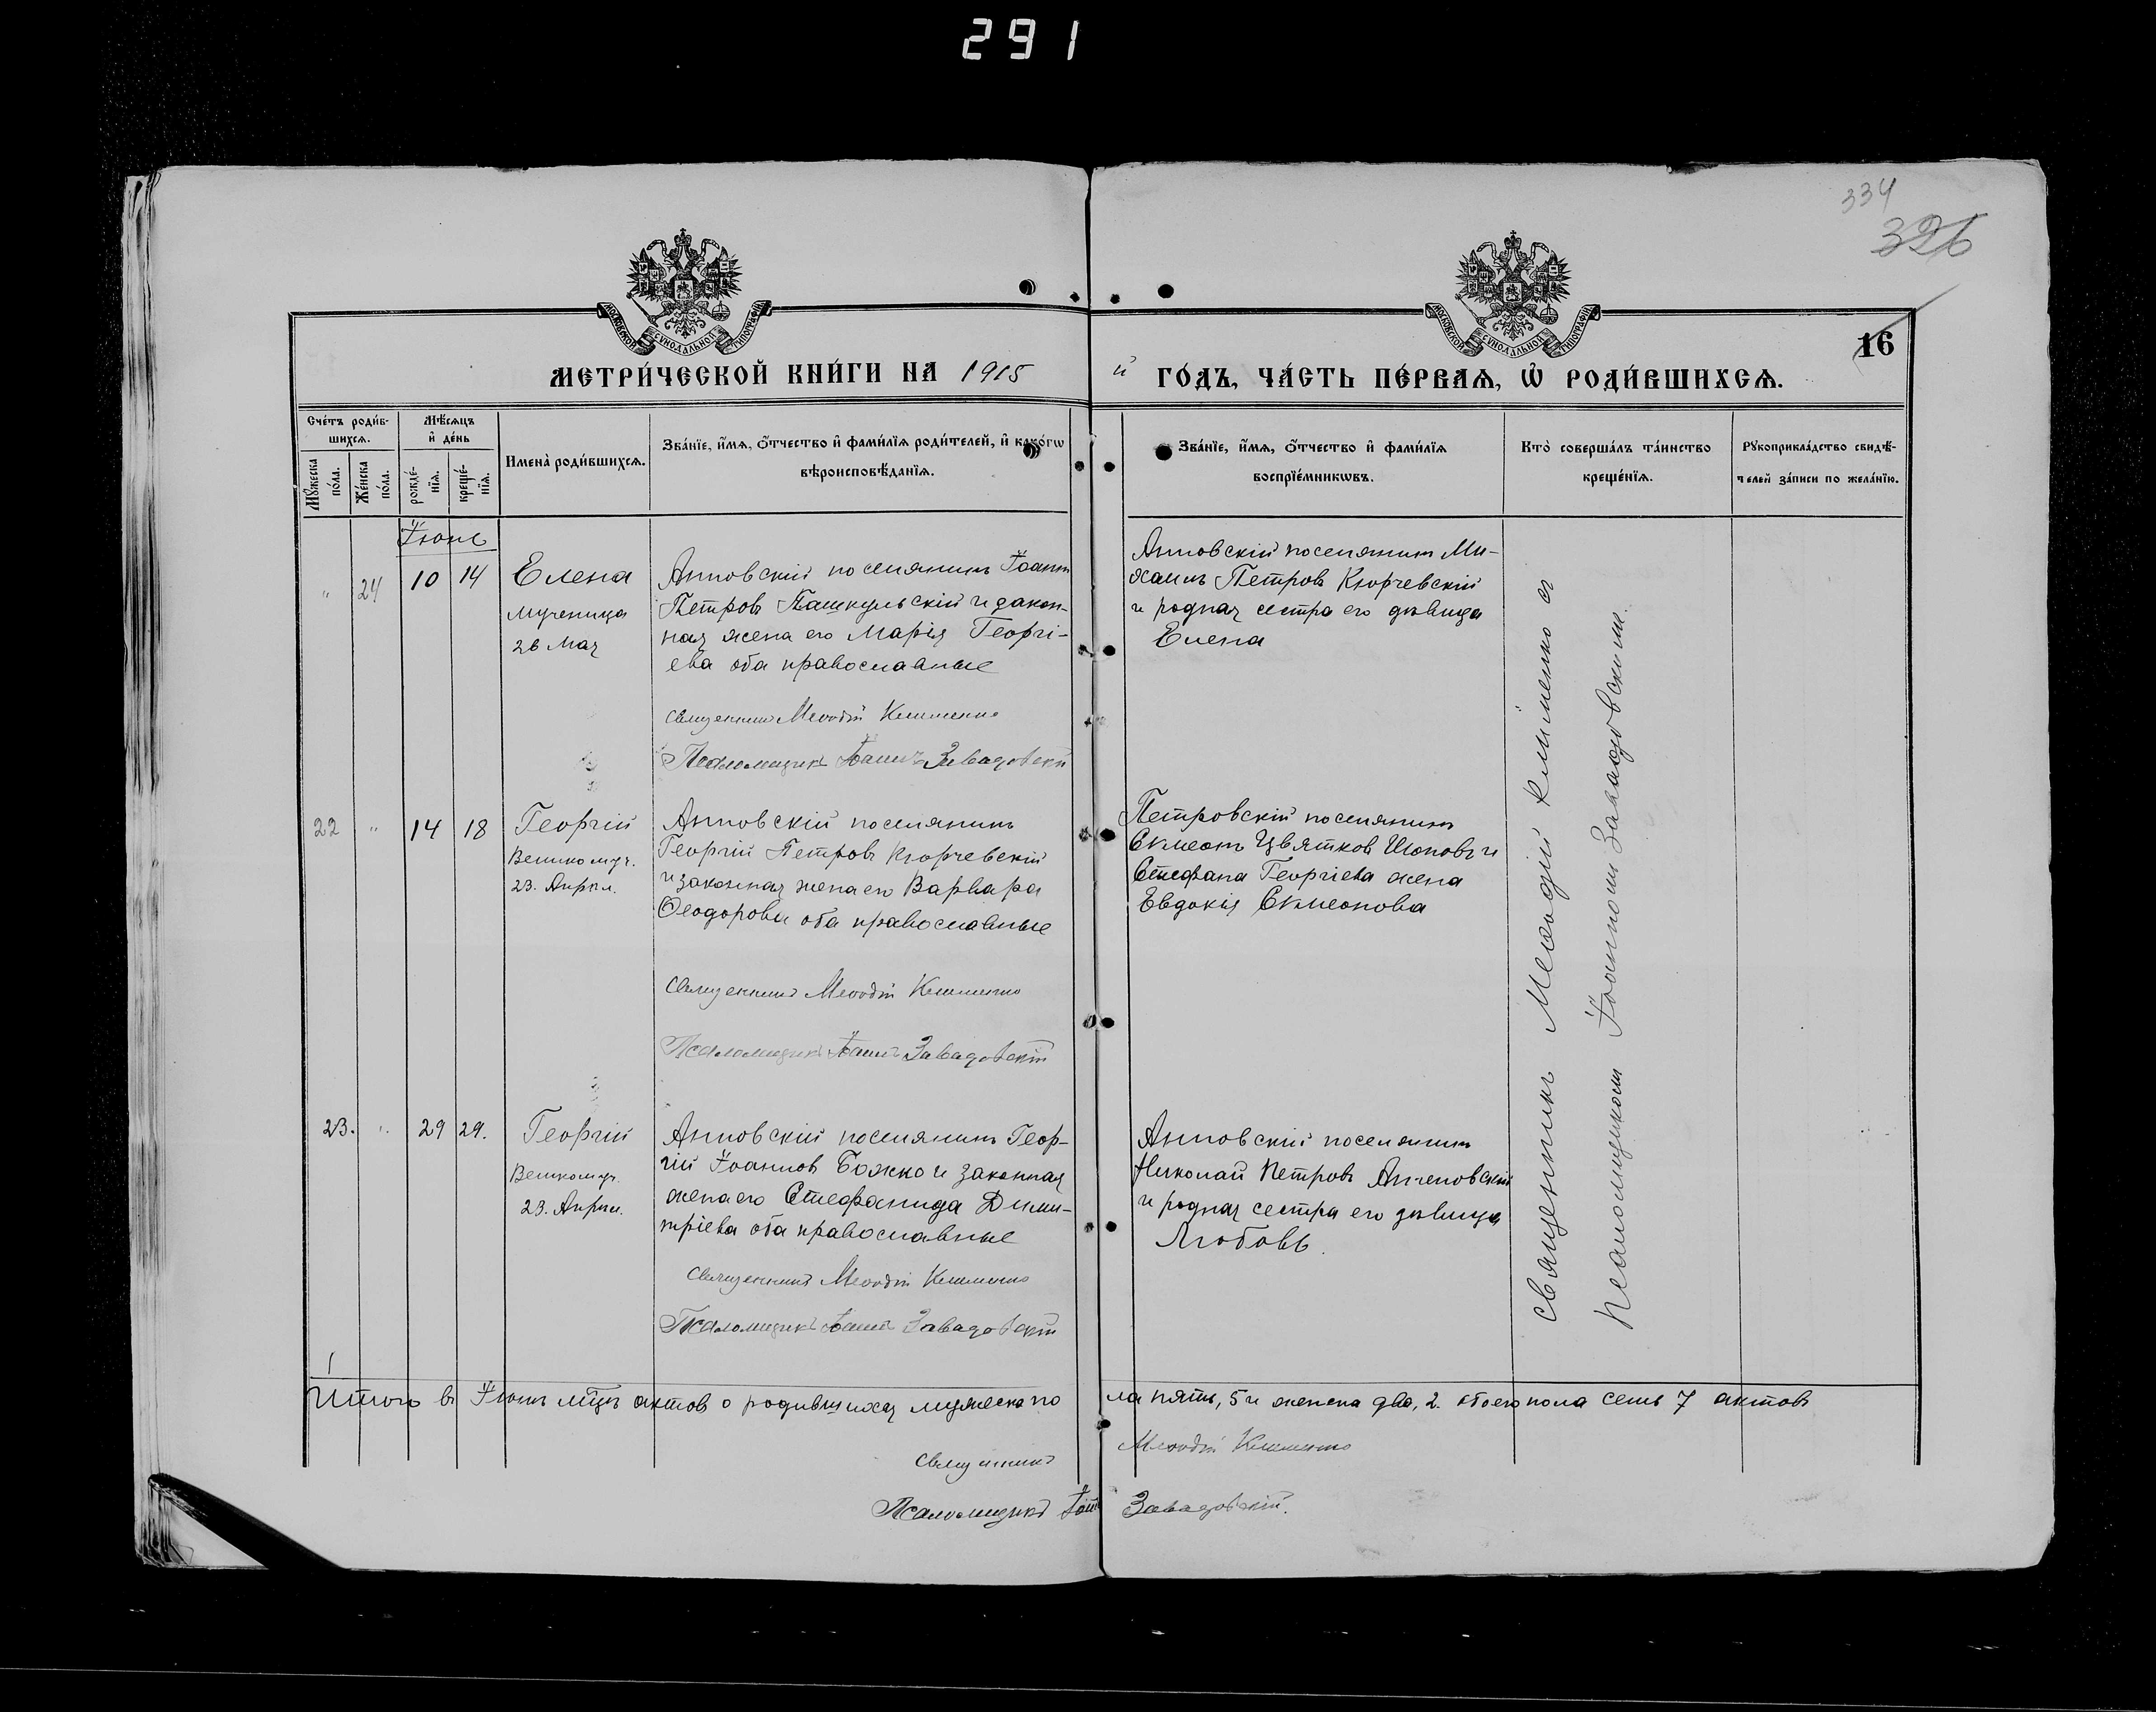 291
334
326
16
МЕТРИ́ЧЕСКОЙ КНИ́ГИ НА 1915 й ГО́ДЪ, ЧА́СТЬ ПЕ́РВАѦ, Ѡ҆ РОДИ́ВШИХСѦ.
Сче́тъ роди́в-
шихсѧ.
Мꙋ́жеска по́ла.
Же́нска по́ла.
Мѣ́сѧцъ
и҆ де́нь
рожде́-
нїѧ.
креще́-
нїѧ.
Имена̀ роди́вшихсѧ.
Зва́нїе, и҆́мѧ, ѻ҆́тчество и҆ фами́лїѧ роди́телей, и҆ како́гѡ
вѣроисповѣ́данїѧ.
Зва́нїе, и҆́мѧ, ѻ҆́тчество и҆ фами́лїѧ
воспрїе́мникѡвъ.
Кто̀ соверша́лъ та́инство
креще́нїѧ.
Рꙋкоприкла́дство свидѣ́-
телей за́писи по жела́нїю.
Іюнь
" 24 10 14
Елена
мученица
26 Мая
Анновскій поселянинъ Іоаннъ
Петровъ Пашкульскій и закон-
ная жена его Марія Георгі-
ева оба православные
Священникъ Меѳодій Клименко
Псаломщикъ Іоаннъ Завадовскій
Анновскій поселянинъ Ми-
хаилъ Петровъ Кюрчевскій
и родная сестра его дѣвица
Елена
22 " 14 18
Георгій
Великомуч.
23. Апрѣл.
Анновскій поселянинъ
Георгій Петровъ Кюрчевскій
и законная жена его Варвара
Ѳеодорова оба православные
Священникъ Меѳодій Клименко
Псаломщикъ Іоаннъ Завадовскій
Петровскій поселянинъ
Симеонъ Цвятковъ Шоповъ и
Стефана Георгіева жена
Евдокія Симеонова
23. " 29 29.
Георгій
Великомуч.
23. Апрѣл.
Анновскій поселянинъ Геор-
гій Іоанновъ Божко и законная
жена его Стефанида Дими-
тріева оба православные
Священникъ Меѳодій Клименко
Псаломщикъ Іоаннъ Завадовскій
Анновскій поселянинъ
Николай Петровъ
и родная сестра его дѣвица
Любовь.
Священникъ Меѳодій Клименко съ
псаломщикомъ Іоанномъ Завадовскимъ.
Итого въ Іюнѣ мцѣ актовъ о родившихся мужеска по
ла пять, 5 и женска два, 2. обоего пола семь 7 актовъ
Священникъ Меѳодій Клименко
Псаломщикъ Іоаннъ Завадовскій.